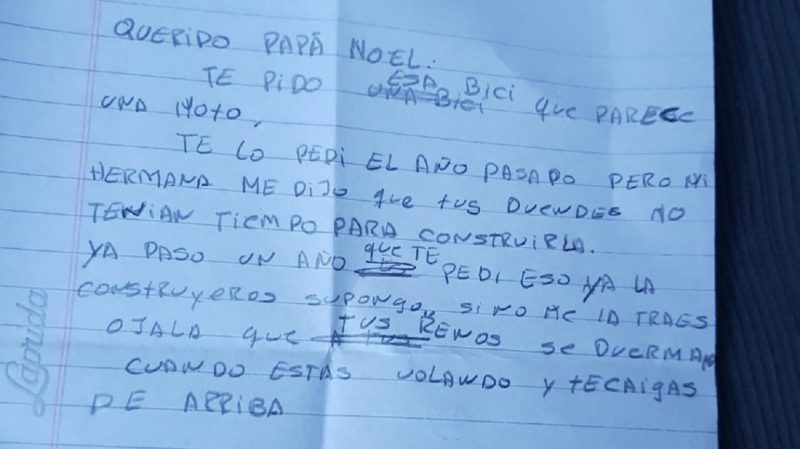 QUERIDO PAPÁ NOEL:
TE PIDO ESA BICI que PARECE
UNA BICI
UNA MOTO,
TE LO PEDI EL AÑO PASADO PERO MI
HERMANA ME DIJO que tus DUENDES NO
TENIAN TIEMPO PARA CONSTRUIRLA.
YA PASO UN AÑO que TE PEDI ESO YA LA
CONSTRUYEROS SUPONGO, SI NO ME LA TRAES
OJALA que TUS RENOS SE DUERMAN
CUANDO ESTAS VOLANDO Y TE CAIGAS
DE ARRIBA
Laprida